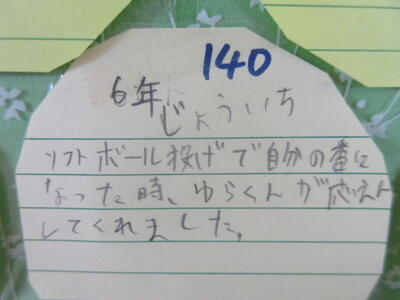 140
6年
じょういち
ソフトボール投げで自分の番に
なった時、ゆらくんが応えん
してくれました。